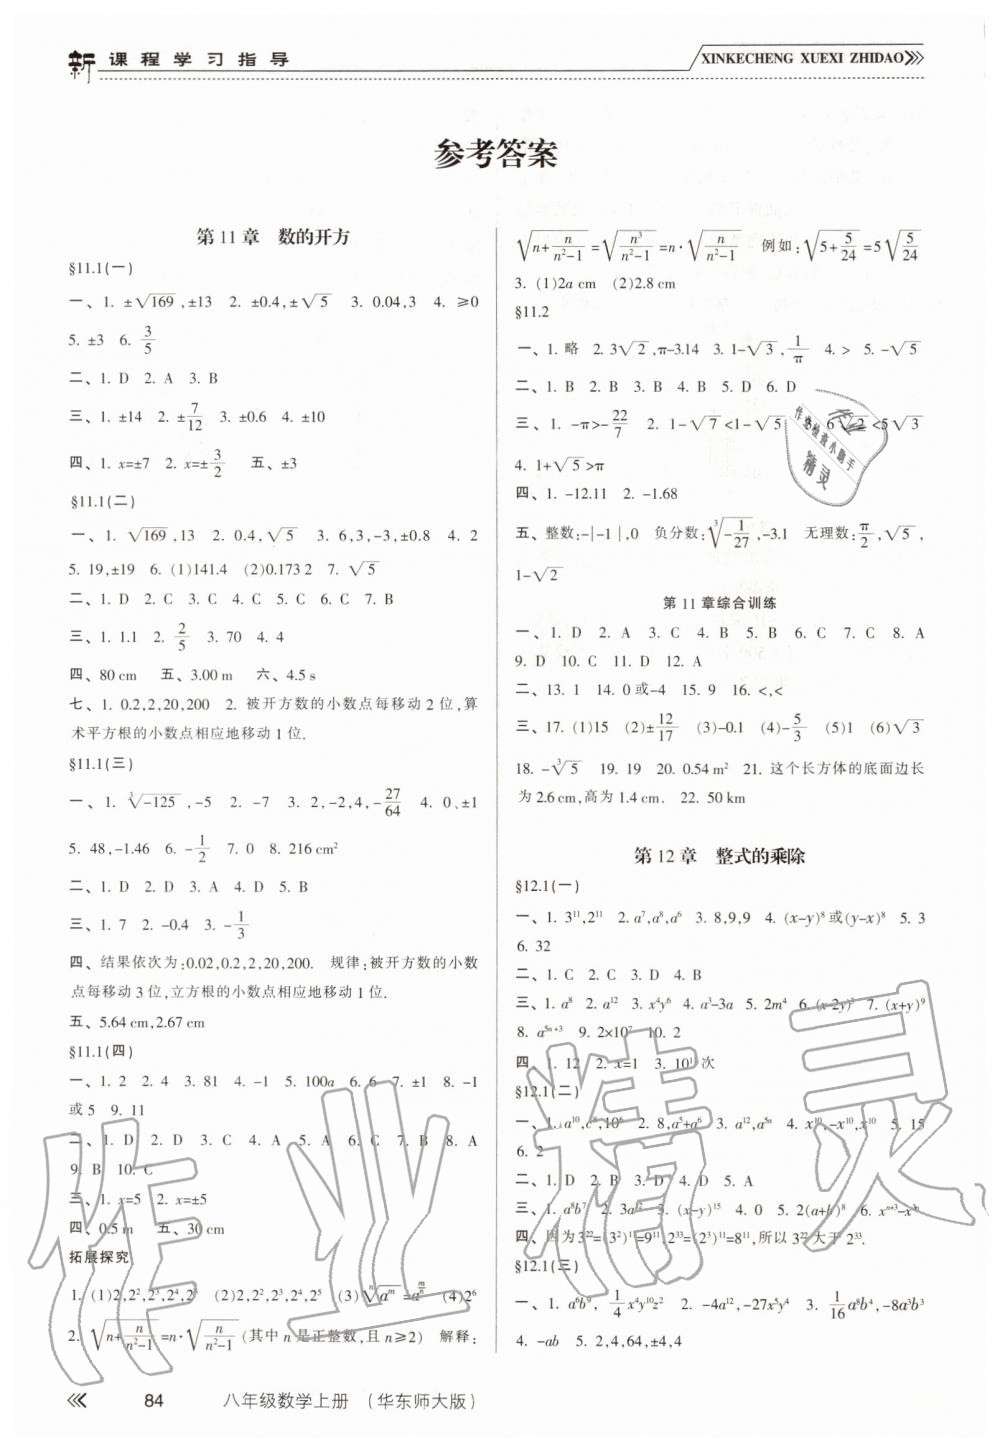 新课程学习指导
XINKECHENG XUEXI ZHIDAO
参考答案
第11章 数的开方
§11.1(一)
一、1. ±√169,±13 2. ±0.4,±√5 3. 0.04,3 4. ≥0
5. ±3 6. 3/5
二、1. D 2. A 3. B
三、1. ±14 2. ±7/12 3. ±0.6 4. ±10
四、1. x=±7 2. x=±3/2 五、±3
§11.1(二)
一、1. √169,13 2. 0.4,√5 3. 6,3,-3,±0.8 4. 2
5. 19,±19 6. (1)141.4 (2)0.173 2 7. √5
二、1. D 2. C 3. C 4. C 5. C 6. C 7. B
三、1. 1.1 2. 2/5 3. 70 4. 4
四、80 cm 五、3.00 m 六、4.5 s
七、1. 0.2,2,20,200 2. 被开方数的小数点每移动2位,算
术平方根的小数点相应地移动1位.
§11.1(三)
一、1. ∛-125,-5 2. -7 3. 2,-2,4,-27/64 4. 0、±1
5. 48,-1.46 6. -1/2 7. 0 8. 216 cm²
二、1. D 2. D 3. A 4. D 5. B
三、1. 7 2. -0.4 3. -1/3
四、结果依次为:0.02,0.2,2,20,200. 规律:被开方数的小数
点每移动3位,立方根的小数点相应地移动1位.
五、5.64 cm,2.67 cm
§11.1(四)
一、1. 2 2. 4 3. 81 4. -1 5. 100a 6. 6 7. ±1 8. -1
或5 9. 11
二、1. D 2. D 3. C 4. A 5. A 6. C 7. B 8. A
9. B 10. C
三、1. x=5 2. x=±5
四、0.5 m 五、30 cm
拓展探究
1. (1)2,2²,2³,2⁴,2⁵ (2)2,2²,2³,2⁴,2⁵ (3)ⁿ√aᵐ=a^(m/n) (4)2⁶
2. √(n+n/(n²-1))=n·√(n/(n²-1)) (其中n是正整数,且n≥2) 解释:
√(n+n/(n²-1))=√(n³/(n²-1))=n·√(n/(n²-1)) 例如:√(5+5/24)=5√(5/24)
3. (1)2a cm (2)2.8 cm
§11.2
一、1. 略 2. 3√2,π-3.14 3. 1-√3,1/π 4. > 5. -√5
二、1. B 2. B 3. B 4. B 5. D 6. D
三、1. -π>-22/7 2. 1-√7<1-√5 6√2<5√3
4. 1+√5>π
四、1. -12.11 2. -1.68
五、整数:-|-1|,0 负分数:∛-1/27,-3.1 无理数:π/2,√5,
1-√2
第11章综合训练
一、1. D 2. A 3. C 4. B 5. B 6. C 7. C 8. A
9. D 10. C 11. D 12. A
二、13. 1 14. 0或-4 15. 9 16. <,<
三、17. (1)15 (2)±12/17 (3)-0.1 (4)-5/3 (5)1 (6)√3
18. -∛5 19. 19 20. 0.54 m² 21. 这个长方体的底面边长
为2.6 cm,高为1.4 cm. 22. 50 km
第12章 整式的乘除
§12.1(一)
一、1. 3¹¹,2¹¹ 2. a⁷,a⁸,a⁶ 3. 8,9,9 4. (x-y)⁸或(y-x)⁸ 5. 3
6. 32
二、1. C 2. C 3. D 4. B
三、1. a⁸ 2. a¹² 3. x⁴y⁶ 4. a³-3a 5. 2m⁴ 6. (x-2y)⁷ 7. (x+y)⁹
8. a⁵ⁿ⁺³ 9. 2×10⁷ 10. 2
四、1. 12 2. x=1 3. 10 次
§12.1(二)
一、1. a¹⁰,c⁸,10⁶ 2. 8,a⁵+a⁶ 3. a¹²,a⁵ⁿ 4. x¹⁰,-x¹⁰,x¹⁰ 5. 15
6. 2
二、1. D 2. B 3. D 4. D 5. A
三、1. a⁸b⁷ 2. 3a¹² 3. (x-y)¹⁵ 4. 0 5. 2(a+b)⁸ 6. xⁿ⁺³-x³ⁿ
四、因为3²²=(3²)¹¹=9¹¹,2³³=(2³)¹¹=8¹¹,所以3²²大于2³³.
§12.1(三)
一、1. a⁶b⁹,1/4x⁴y¹⁰z² 2. -4a¹²,-27x⁵y⁴ 3. 1/16a⁸b⁴,-8a³b³
4. -ab 5. 2,4,64,±4,4
84 八年级数学上册 (华东师大版)
作业检查小助手
精灵
作业精灵